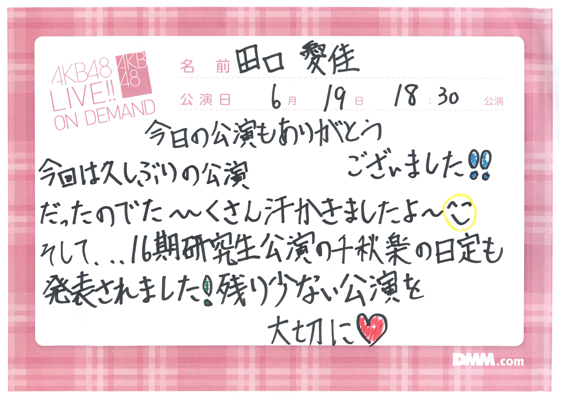 AKB48
LIVE!!
ON DEMAND
AKB
48
名前 田口 愛佳
公演日 6月 19日 18:30 公演
今日の公演もありがとう
ございました!!
今回は久しぶりの公演
だったのでた〜〜くさん汗かきましたよ〜
そして...16期研究生公演の千秋楽の日定も
発表されました!残り少ない公演を
大切に♥
DMM.com